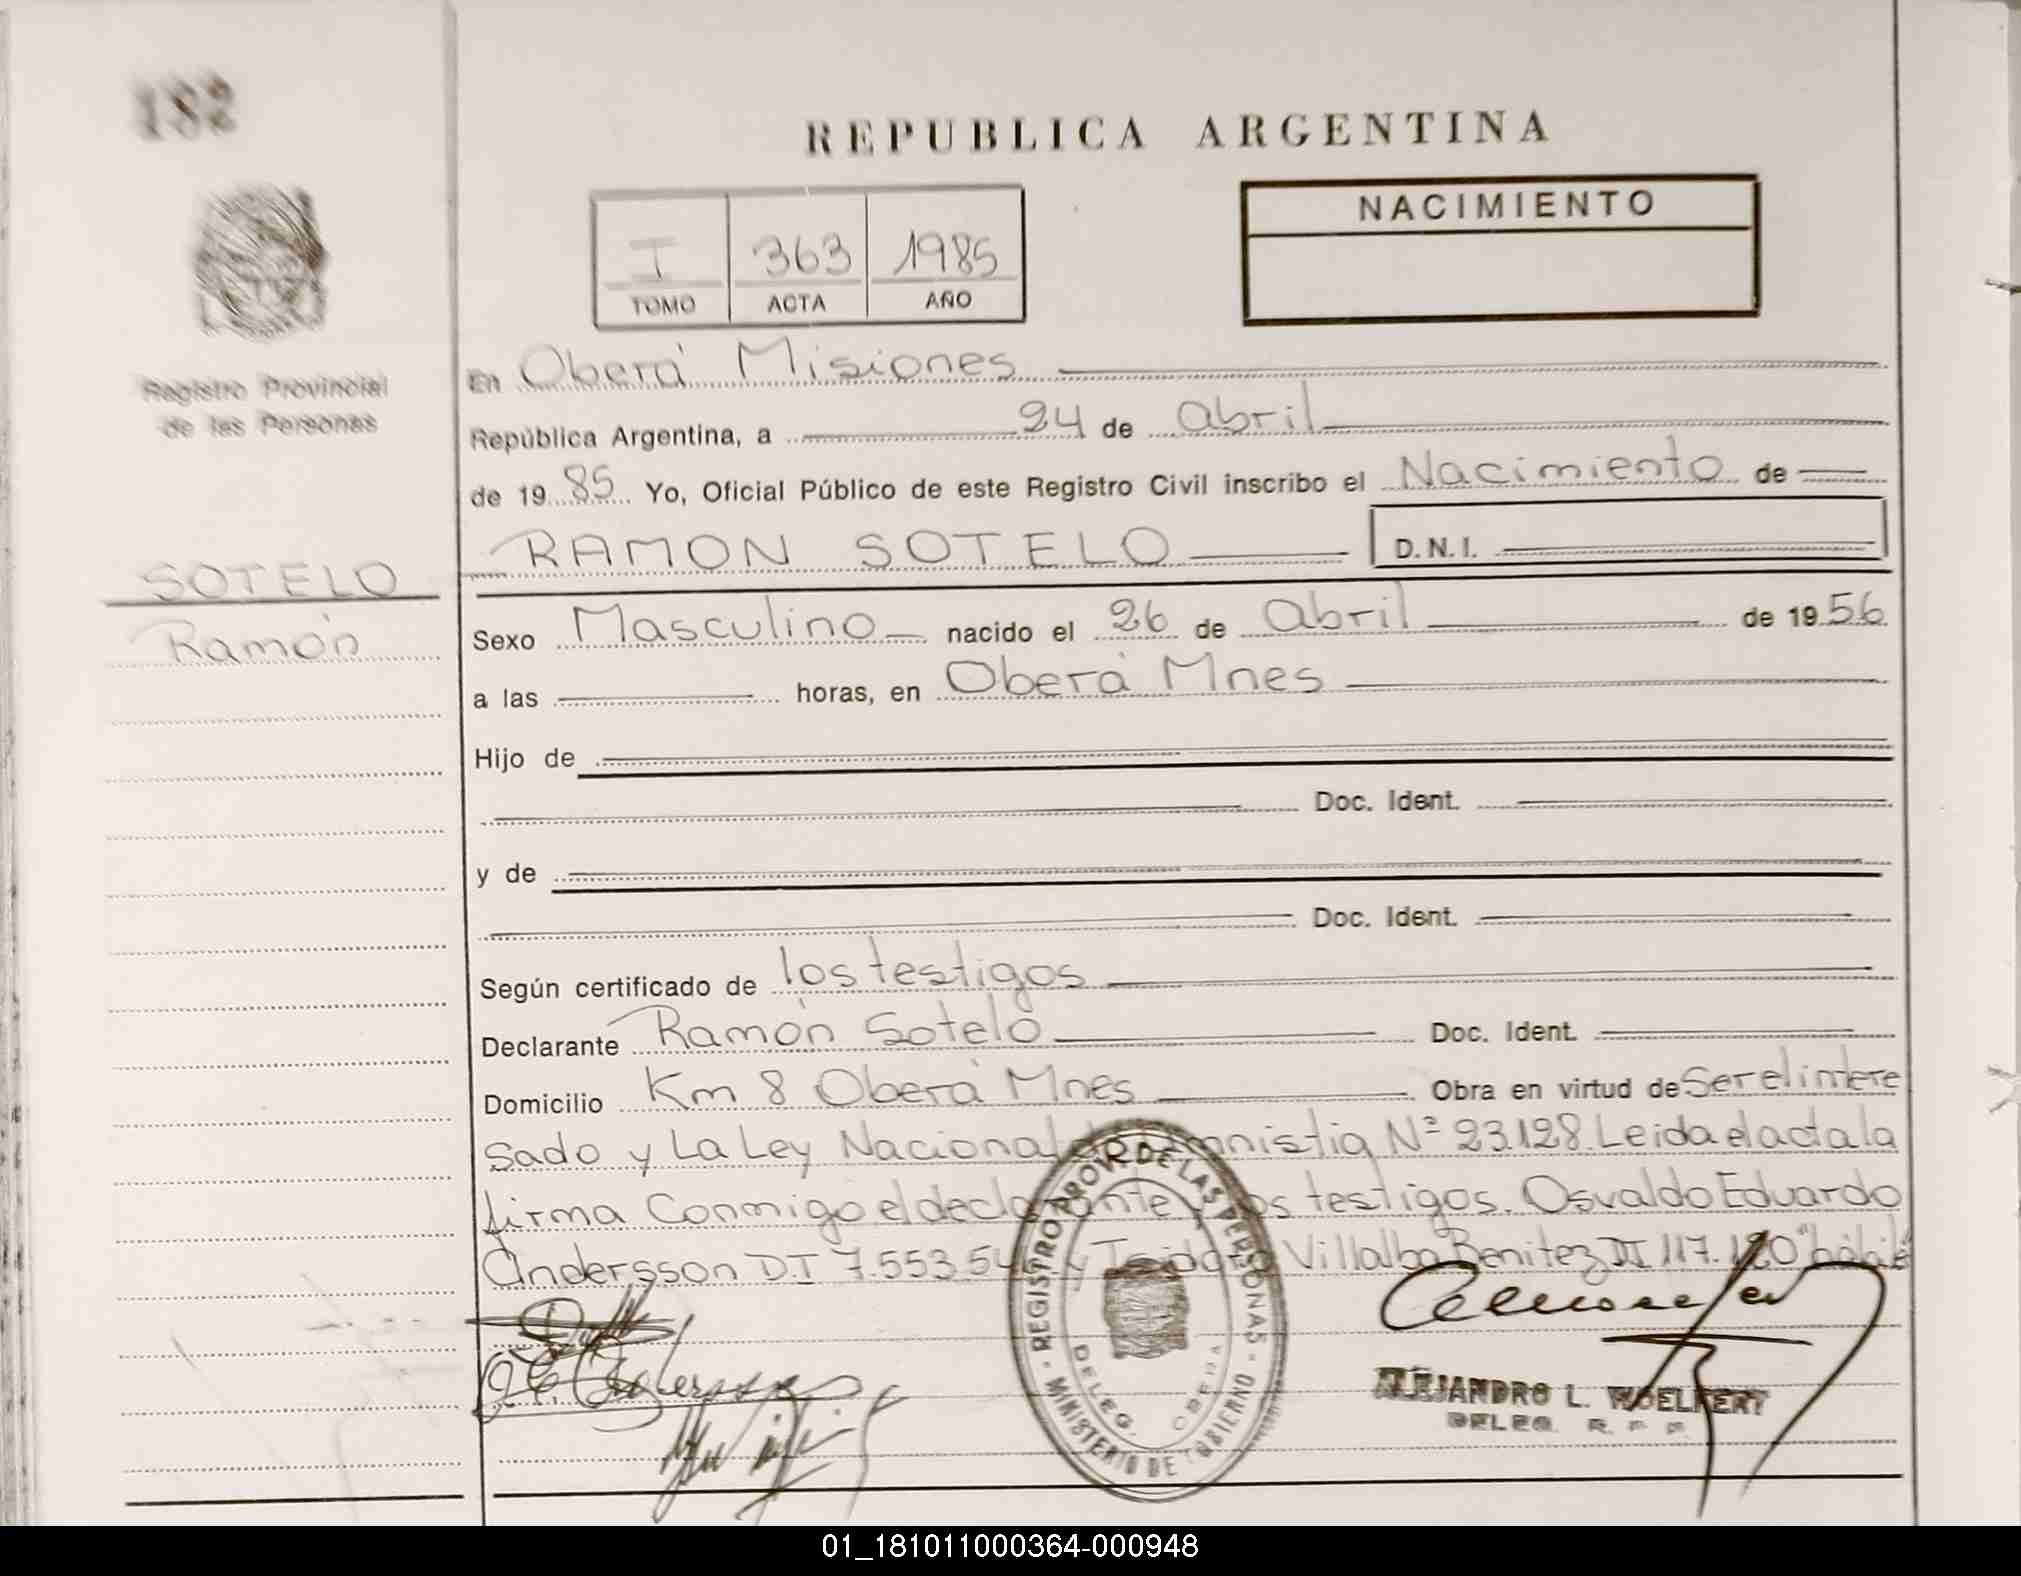 182
REPUBLICA ARGENTINA
I 363 1985
TOMO ACTA AÑO
NACIMIENTO
Registro Provincial
de las Personas
SOTELO
Ramón
En Oberá Misiones
República Argentina, a 24 de abril
de 1985 Yo, Oficial Público de este Registro Civil inscribo el Nacimiento de
RAMON SOTELO D.N.I.
Sexo Masculino nacido el 26 de abril de 1956
a las horas, en Oberá Mnes
Hijo de
Doc. Ident.
y de
Doc. Ident.
Según certificado de los testigos
Declarante Ramón Sotelo Doc. Ident.
Domicilio Km 8 Oberá Mnes Obra en virtud de ser el intere
sado y La Ley Nacional de amnistia Nº 23.128. Leida el acta la
firma Conmigo el declarante y los testigos. Osvaldo Eduardo
Andersson D.I 7.553.54 y Villalba Benitez DI 117.120 "hábil"
REGISTRO PROV. DE LAS PERSONAS
MINISTERIO DE GOBIERNO
DELEG. OBERA
ALEJANDRO L. WOELFERT
DELEG. R. P. P.
01_181011000364-000948